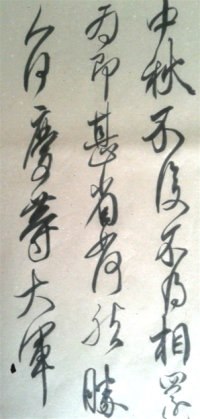 中秋不復不得相還
為即甚省何然勝
人何慶等大軍